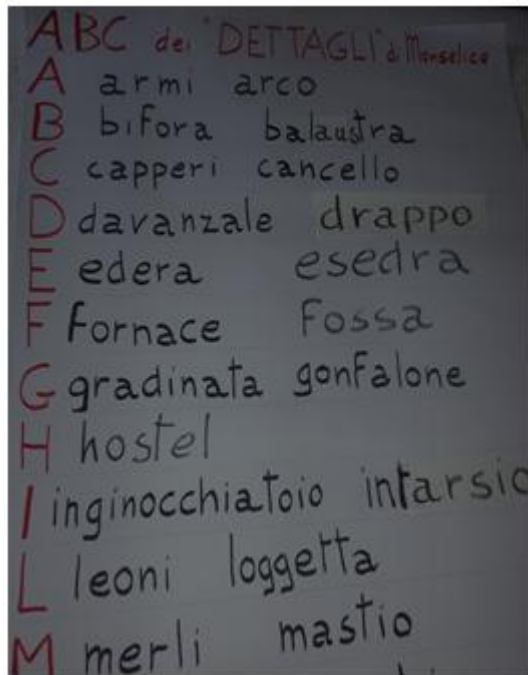 ABC dei "DETTAGLI" di Monselice
A armi arco
B bifora balaustra
C capperi cancello
D davanzale drappo
E edera esedra
F fornace fossa
G gradinata gonfalone
H hostel
I inginocchiatoio intarsio
L leoni loggetta
M merli mastio